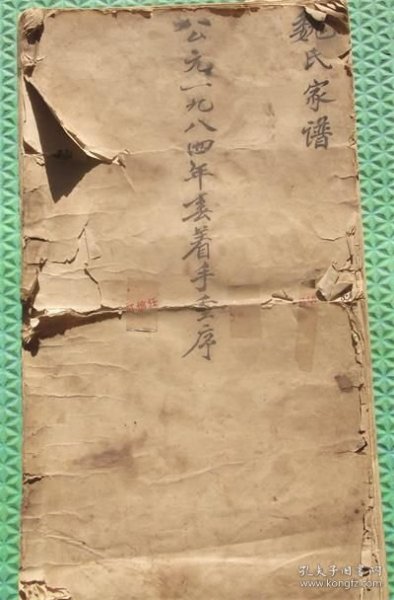 魏氏家谱
公元一九八四年春着手立序
孔夫子旧书网
www.kongfz.com